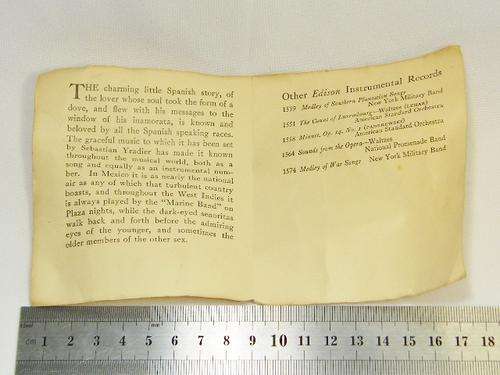 THE charming little Spanish story, of
the lover whose soul took the form of a
dove, and flew with his messages to the
window of his inamorata, is known and
beloved by all the Spanish speaking races.
The graceful music to which it has been set
by Sebastian Yradier has made it known
throughout the musical world, both as a
song and equally as an instrumental num-
ber. In Mexico it is as nearly the national
air as any of which that turbulent country
boasts, and throughout the West Indies it
is always played by the "Marine Band" on
Plaza nights, while the dark-eyed senoritas
walk back and forth before the admiring
eyes of the younger, and sometimes the
older members of the other sex.
Other Edison Instrumental Records
Medley of Southern Plantation Songs
New York Military Band
1551 The Count of Luxembourg—Waltzes (LEHAR)
American Standard Orchestra
Minuet, Op. 14, No. 1 (PADEREWSKI)
American Standard Orchestra
1564 Sounds from the Opera—Waltzes
National Promenade Band
1574 Medley of War Songs New York Military Band
cm 1 2 3 4 5 6 7 8 9 10 11 12 13 14 15 16 17 18